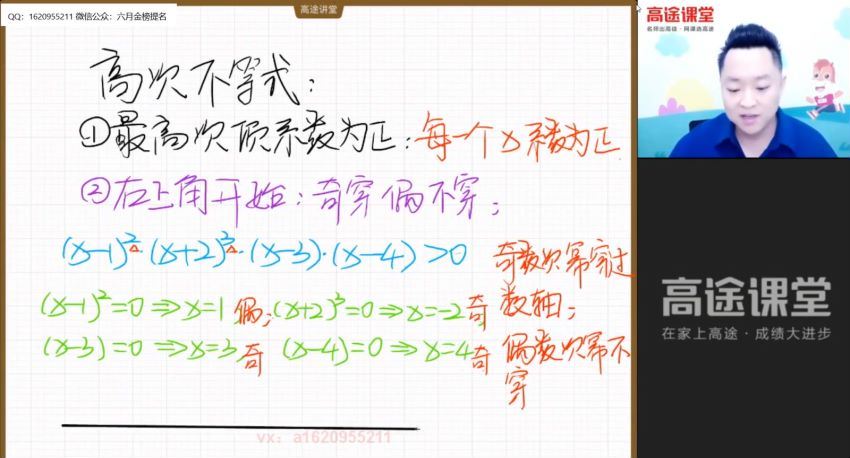 QQ：1620955211 微信公众：六月金榜提名
高途讲堂
高途课堂
名师出高徒·网课选高途
高次不等式：
①最高次项系数为正：每一个x系数为正
②右上角开始：奇穿偶不穿；
(x-1)²·(x+2)³·(x-3)·(x-4)>0
奇数次幂穿过
数轴；
偶数次幂不
穿
(x-1)²=0⇒x=1 偶；(x+2)³=0⇒x=-2 奇
(x-3)=0⇒x=3 奇 (x-4)=0⇒x=4 奇
vx：a1620955211
高途课堂
在家上高途·成绩大进步